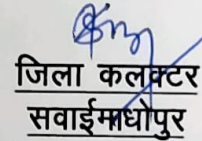 जिला कलक्टर
सवाईमाधोपुर